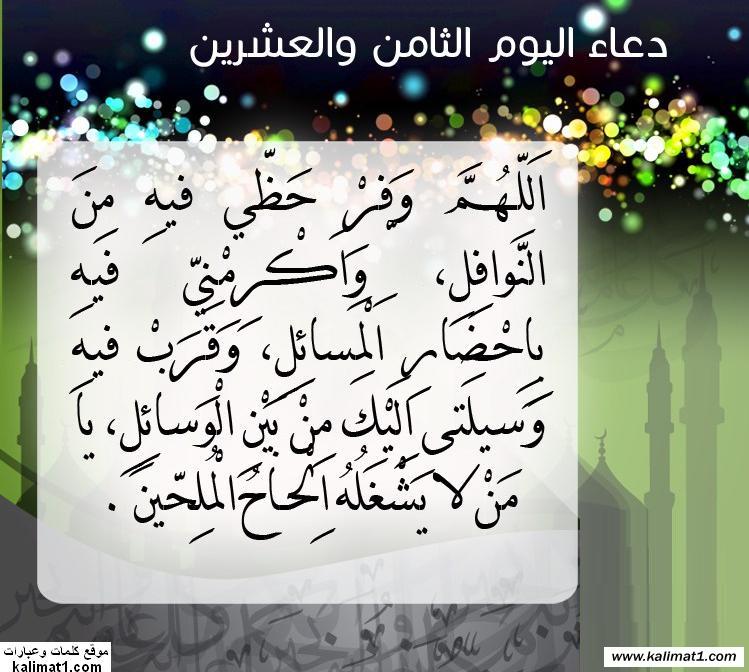 دعاء اليوم الثامن والعشرين
اَللّهُمَّ وَفِرْ حَظّي فيهِ مِنَ
النَّوافِلِ، وَاَكْرِمْنِيّ فَيهِ
بِاِحْضَارِ الْمَسائِلِ، وَقَرِّبْ فيهِ
وَسيلَتي اِلَيْكَ مِنْ بَيْنِ الْوَسائِلِ، يا
مَنْ لا يَشْغَلُهُ اِلْحاحُ الْمُلِحّينَ .
موقع كلمات وعبارات
kalimat1.com
www.kalimat1.com